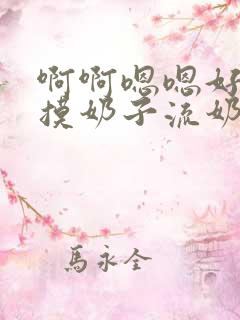 啊啊嗯嗯好
摸奶子流奶
馬永全